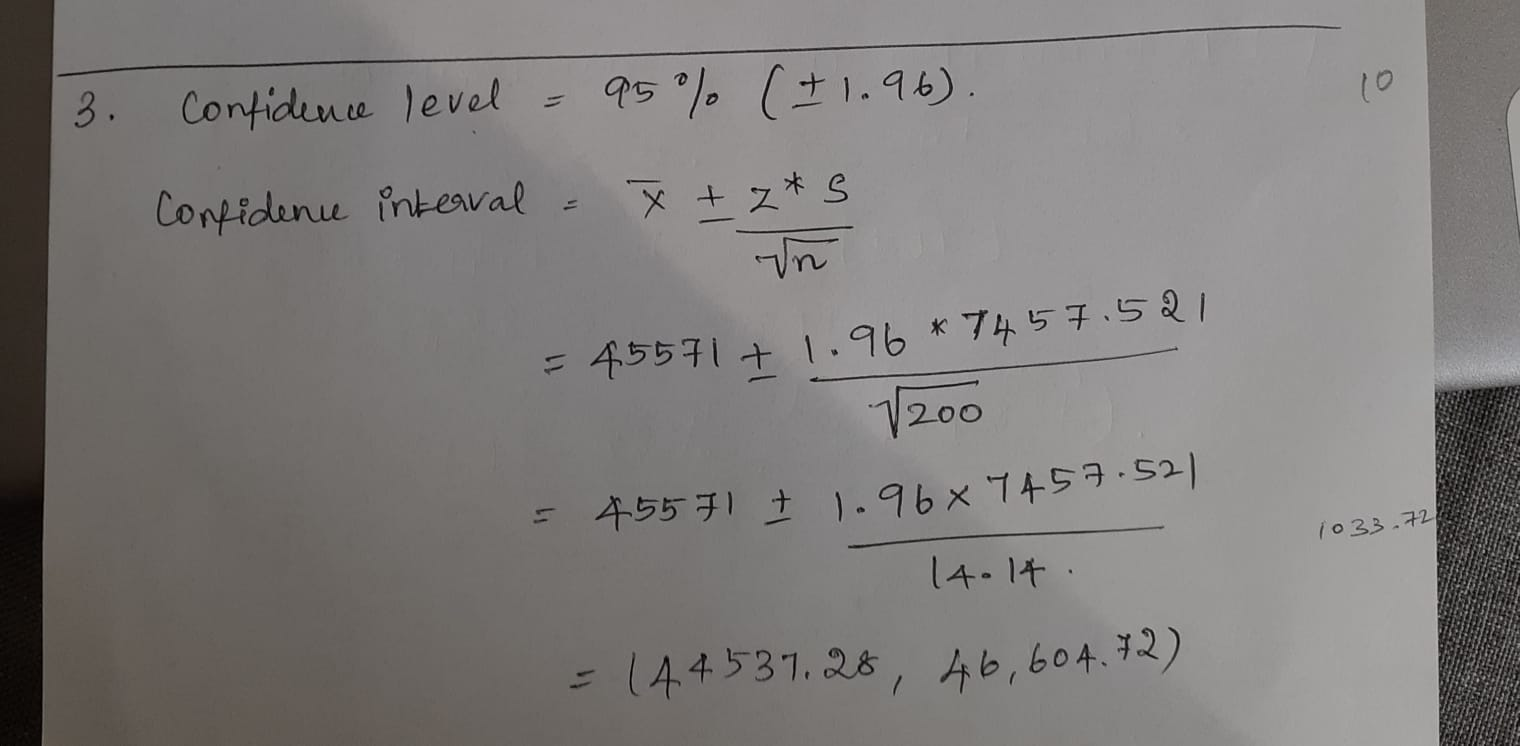 3. Confidence level = 95% (± 1.96). 10
Confidence interval = x̄ ± z * s
√n
= 45571 ± 1.96 * 7457.521
√200
= 45571 ± 1.96 x 7457.521
1033.72
14.14.
= (44537.28, 46,604.72)